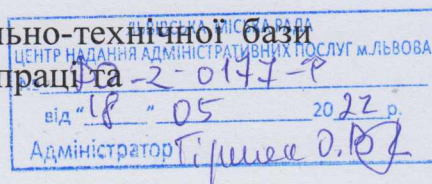 льно-технічної бази
ЛЬВІВСЬКА МІСЬКА РАДА
ЦЕНТР НАДАННЯ АДМІНІСТРАТИВНИХ ПОСЛУГ м.ЛЬВОВА
праці та
-2-0177-
від "18" 05 2022 р.
Адміністратор